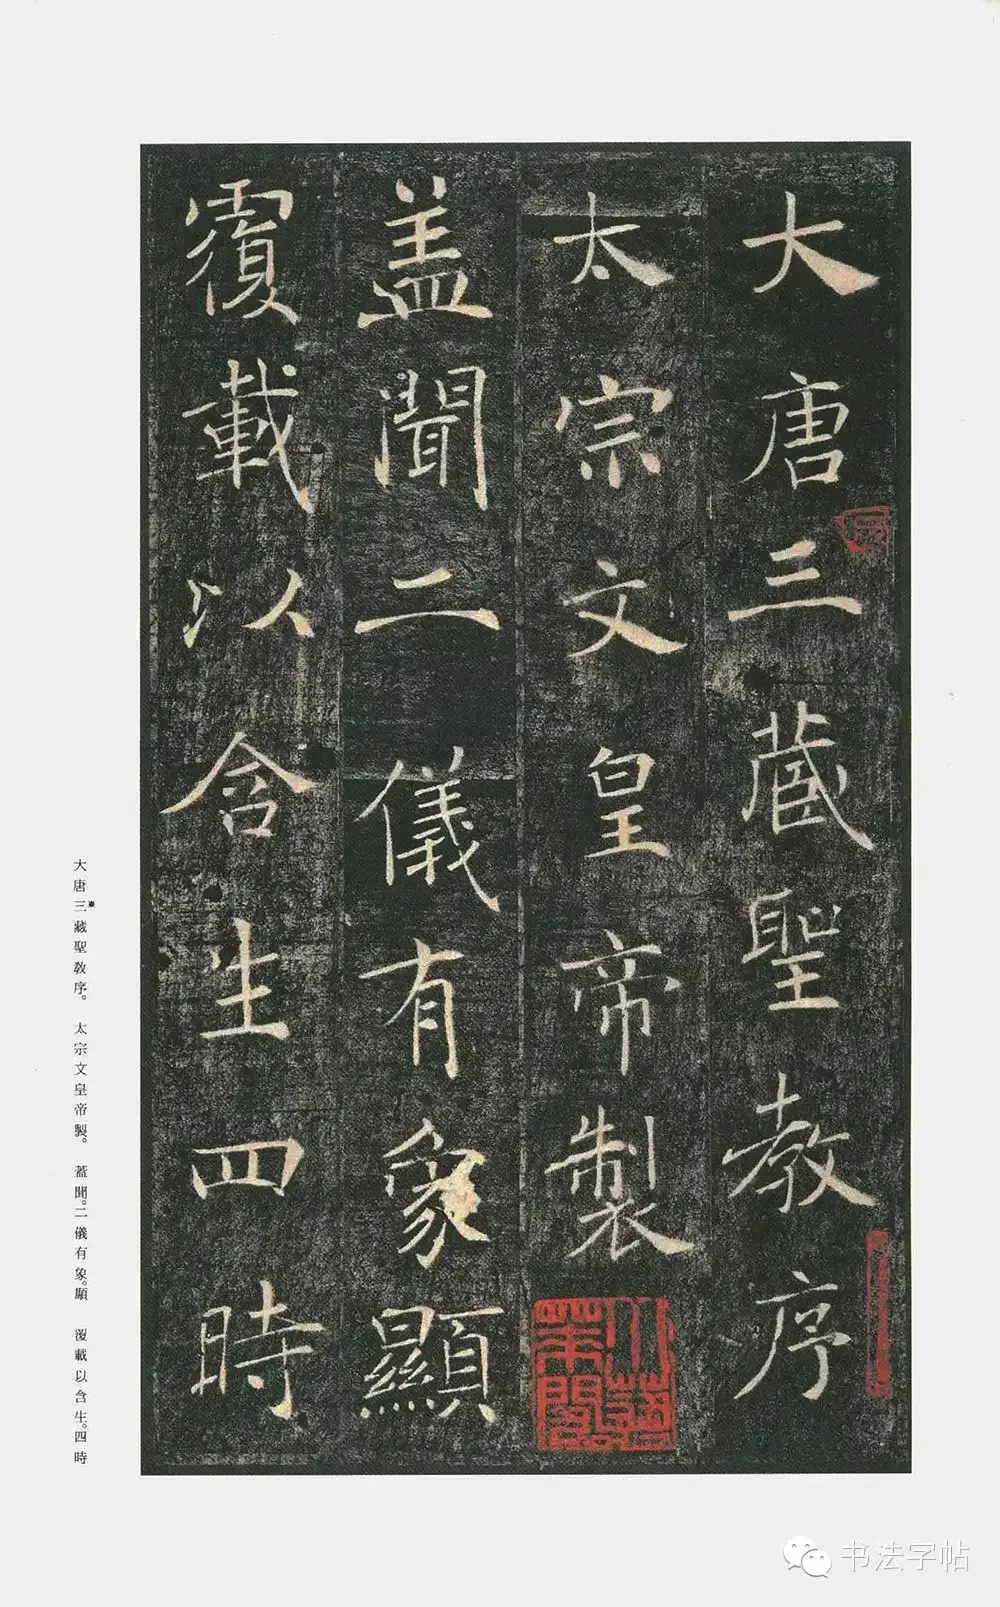 大唐三藏聖教序
太宗文皇帝製
蓋聞二儀有象顯
覆載以含生四時
大唐三藏聖教序。 太宗文皇帝製。 蓋聞。二儀有象。顯 覆載以含生。四時
书法字帖